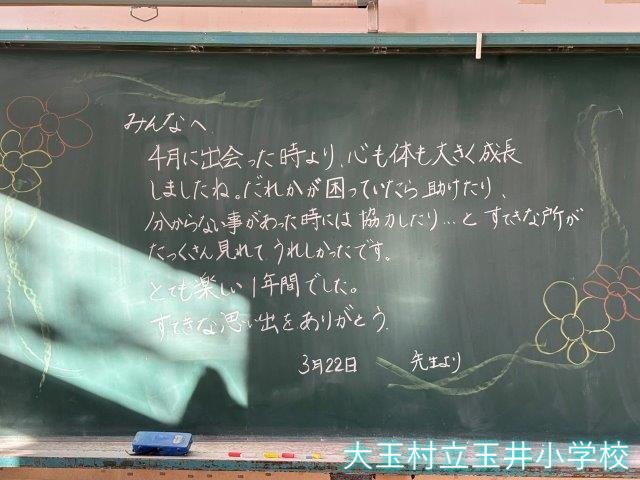 みんなへ
4月に出会った時より、心も体も大きく成長
しましたね。だれかが困っていたら助けたり、
分からない事があった時には協力したり…と すてきな所が
たっくさん見れて うれしかったです。
とても楽しい1年間でした。
すてきな思い出をありがとう。
3月22日 先生より
大玉村立玉井小学校